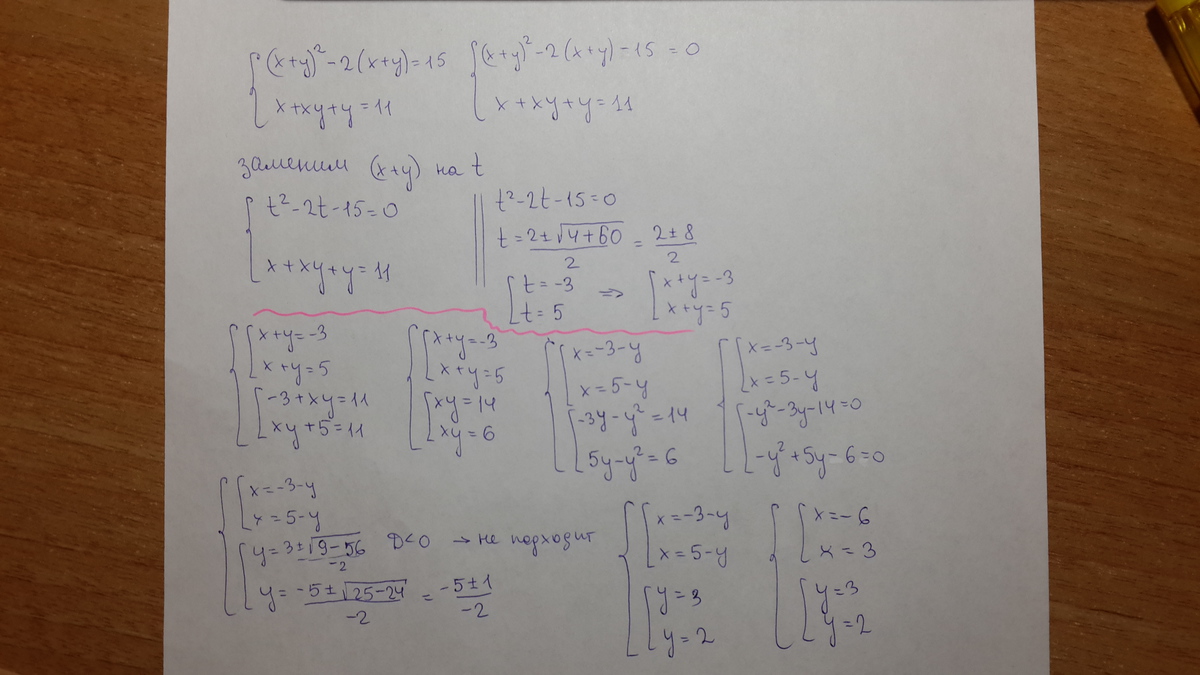 (x+y)² - 2(x+y) = 15
x + xy + y = 11
(x+y)² - 2(x+y) - 15 = 0
x + xy + y = 11
заменим (x+y) на t
t² - 2t - 15 = 0
x + xy + y = 11
t² - 2t - 15 = 0
t = (2 ± √(4+60))/2 = (2 ± 8)/2
[t = -3 => [x+y = -3
[t = 5 [x+y = 5
x+y = -3
x+y = 5
-3 + xy = 11
xy + 5 = 11
x+y = -3
x+y = 5
xy = 14
xy = 6
x = -3 - y
x = 5 - y
-3y - y² = 14
5y - y² = 6
x = -3 - y
x = 5 - y
-y² - 3y - 14 = 0
-y² + 5y - 6 = 0
x = -3 - y
x = 5 - y
y = (3 ± √(9-56))/-2 D<0 → не подходит
y = (-5 ± √(25-24))/-2 = (-5 ± 1)/-2
x = -3 - y
x = 5 - y
y = 3
y = 2
x = -6
x = 3
y = 3
y = 2